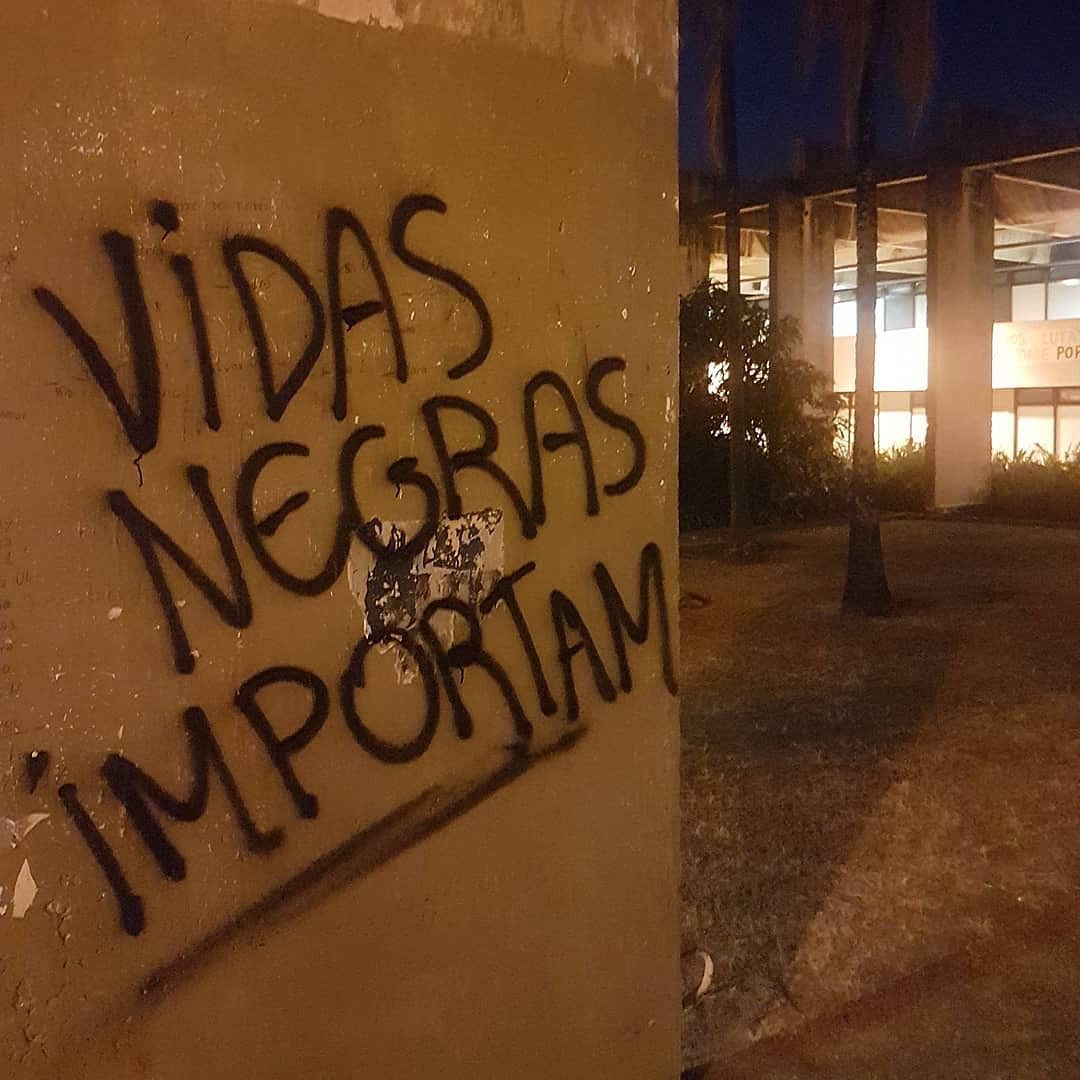 ViDAS
NEGRAS
iMPORTAM
LUTA
POR